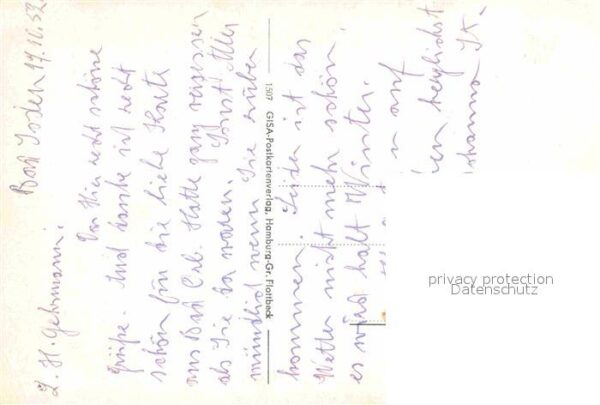 Bad Soden 19.10.52
L. H. Gehrmann!
Von Hier recht schöne
Grüße. Und danke ist recht
schön für die liebe Karte
aus Bad Orb. Hatte ganz vergessen
als Sie da waren. Sonst Alles
mündlich wenn Sie rüber
kommen. Leider ist das
Wetter nicht mehr schön,
es wird halt Winter.
auf
herzlichst
Johanna St.
1507 GISA-Postkartenverlag, Hamburg-Gr. Flottbeck
privacy protection
Datenschutz